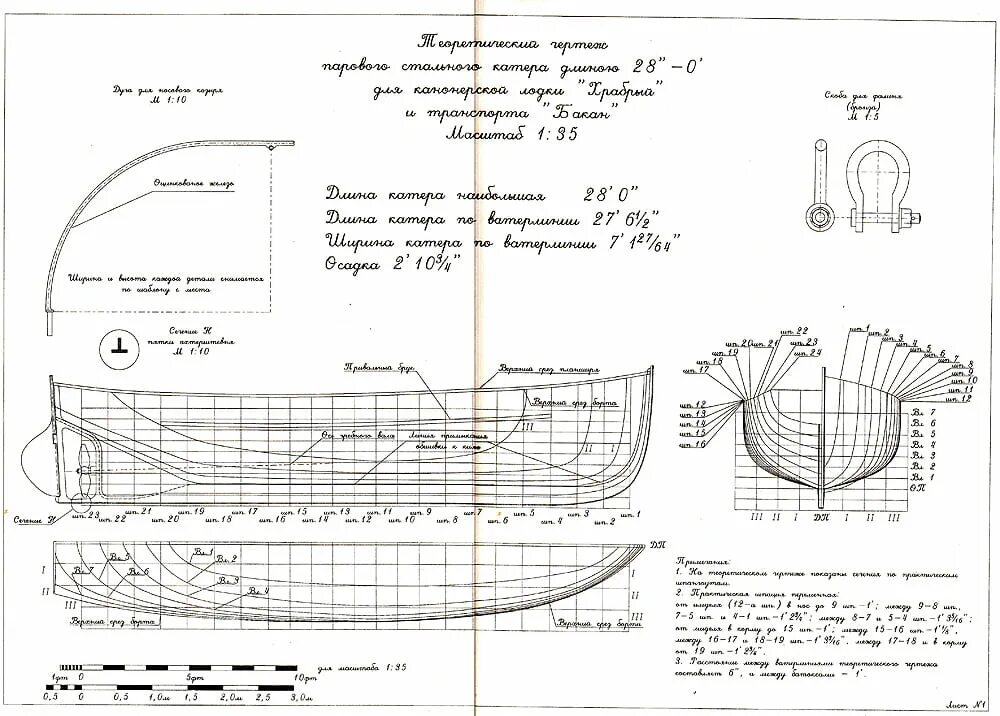 Теоретический чертеж
парового стального катера длиною 28"-0'
для канонерской лодки "Храбрый"
и транспорта "Бакан"
Масштаб 1:35
Дуга для носового козыря
М 1:10
Оцинкованое железо
Ширина и высота каждой детали снимается
по шаблону с места
Сечение Н
пятки ахтерштевня
М 1:10
Скоба для фалиня
(бронза)
М 1:5
Длина катера наибольшая 28' 0"
Длина катера по ватерлинии 27' 6 1/2"
Ширина катера по ватерлинии 7' 1 27/64"
Осадка 2' 10 3/4"
Привальный брус
Верхний срез планширя
Верхний срез борта
Ось гребного вала
Линия примыкания
обшивки к килю
III
II
I
Сечение Н
шп.23 шп.22 шп.21 шп.20 шп.19 шп.18 шп.17 шп.16 шп.15 шп.14 шп.13 шп.12 шп.11 шп.10 шп.9 шп.8 шп.7 шп.6 шп.5 шп.4 шп.3 шп.2 шп.1
шп.22
шп.20 шп.21 шп.23
шп.19 шп.24
шп.18
шп.17
шп.12
шп.13
шп.14
шп.15
шп.16
шп.1
шп.2
шп.3
шп.4
шп.5
шп.6
шп.7
шп.8
шп.9
шп.10
шп.11
шп.12
Вл 7
Вл 6
Вл 5
Вл 4
Вл 3
Вл 2
Вл 1
ОП
III II I ДП I II III
ДП
I
II
III
Вл.7
Вл.5
Вл.6
Вл.1
Вл.2
Вл.3
Вл.4
I
II
III
Верхний срез борта
Верхний срез борта
Примечания:
1. На теоретическом чертеже показаны сечения по практическим
шпангоутам.
2. Практическая шпация переменная:
от миделя (12-а шп.) в нос до 9 шп.-1'; между 9-8 шп.,
7-5 шп. и 4-1 шп.-1' 2 3/8"; между 8-7 и 5-4 шп.-1' 3 3/16";
от миделя в корму до 15 шп.-1'; между 15-16 шп.-1' 1/8",
между 16-17 и 18-19 шп.-1' 3 3/16", между 17-18 и в корму
от 19 шп.-1' 2 3/8".
3. Расстояние между ватерлиниями теоретического чертежа
составляет 6", и между батоксами - 1'.
для масштаба 1:35
1фт 0 5фт 10фт
0,5 0 0,5 1,0м 1,5 2,0м 2,5 3,0м
Лист N1